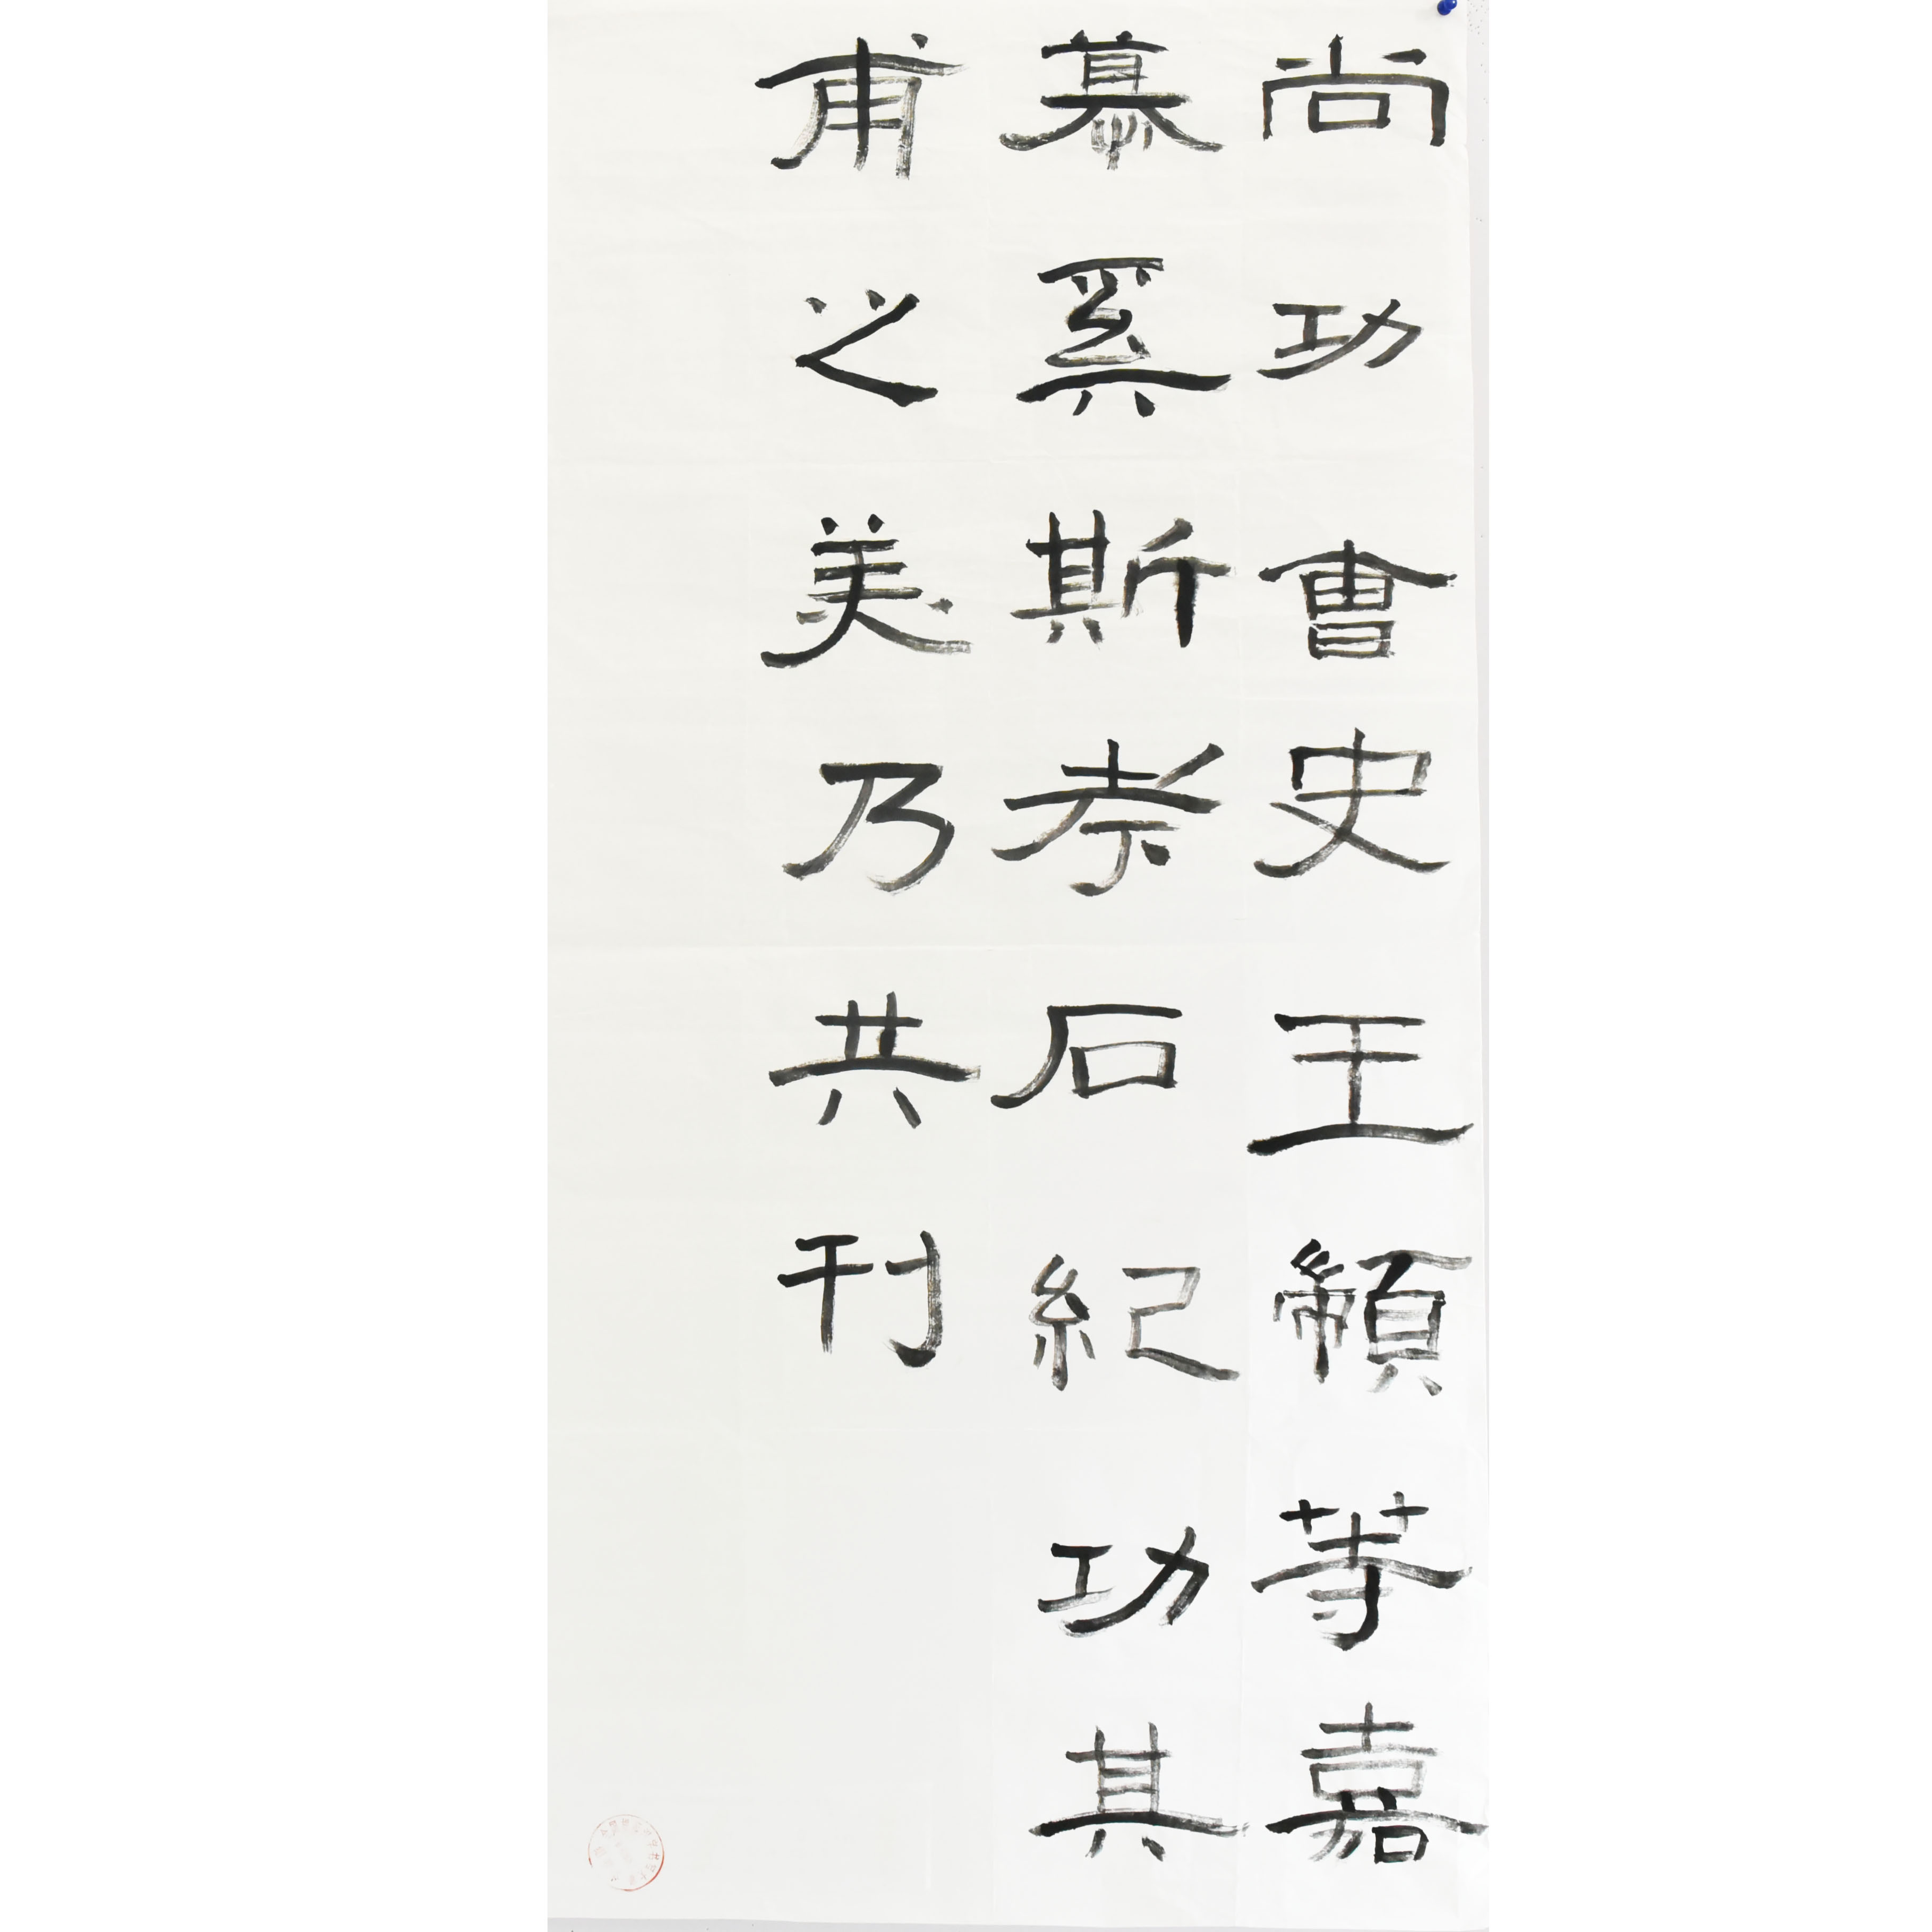 尚功會史王顓等嘉
慕奚斯考石紀功其
甫之美乃共刊